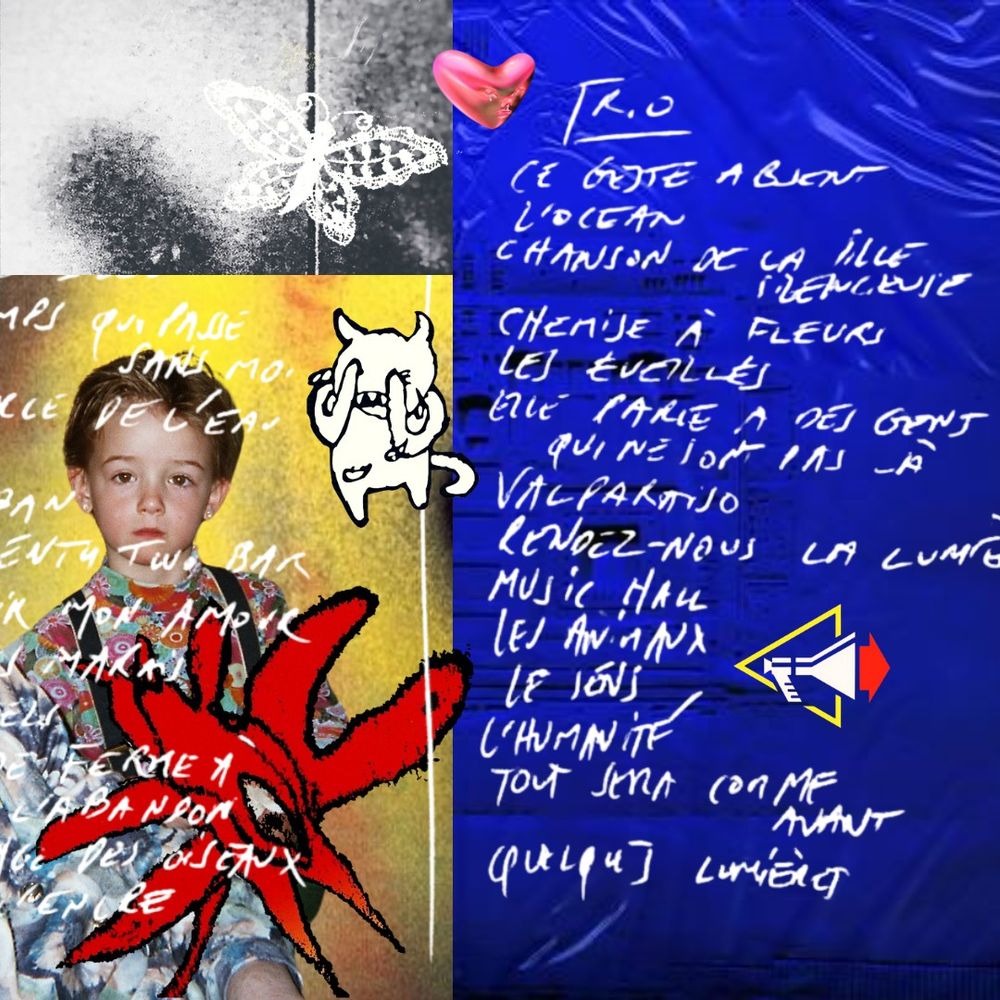 TR.O
CE GESTE ABSENT
L'OCEAN
CHANSON DE LA FILLE
SILENCIEUSE
CHEMISE À FLEURS
LES ÉVEILLÉS
ELLE PARLE A DES GENS
QUI NE SONT PAS LÀ
VALPARAISO
RENDEZ-NOUS LA LUMIÈ
MUSIC HALL
LES ANIMAUX
LE SENS
L'HUMANITÉ
TOUT SERA COMME
AVANT
(QUELQUES LUMIÈRES
MPS QUI PASSE
SANS MOI
DE L'EAU
BAN
ENTY TWO BAR
IR MON AMOUR
S MARAIS
ELS
DE FERME À
L'ABANDON
DES OISEAUX